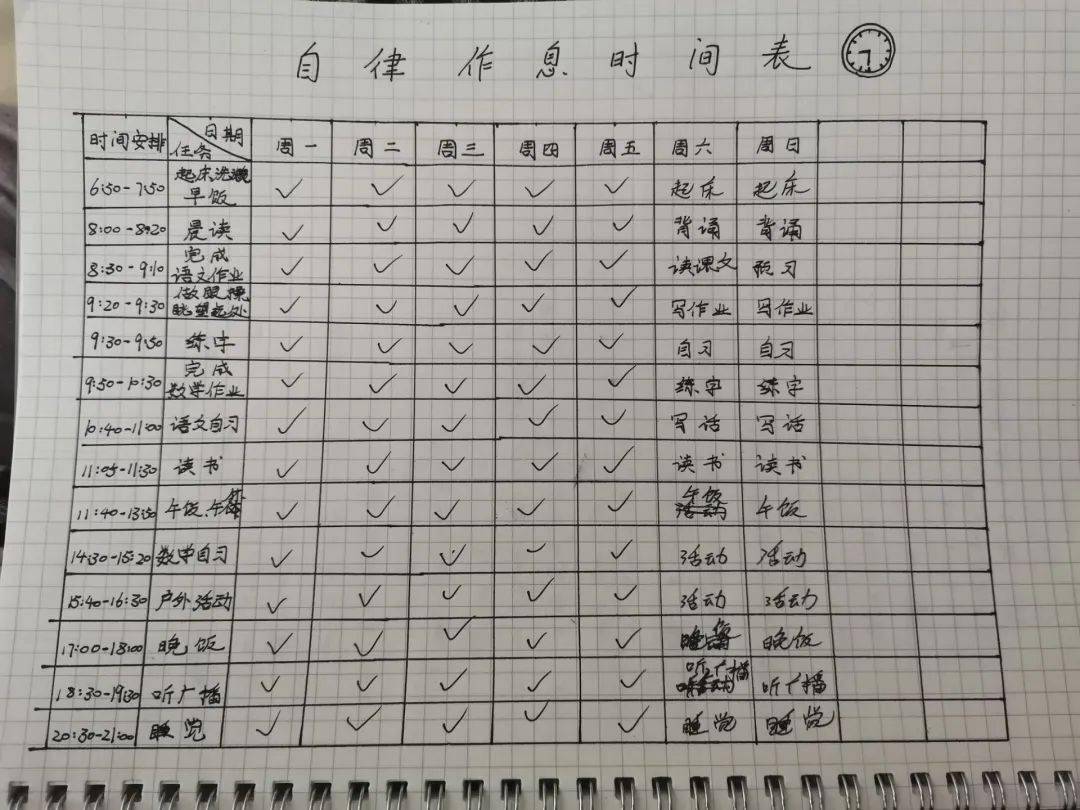 自律作息时间表
时间安排 日期 任务 周一 周二 周三 周四 周五 周六 周日
6:50-7:50 起床洗漱 早饭 ✓ ✓ ✓ ✓ ✓ 起床 起床
8:00-8:20 晨读 ✓ ✓ ✓ ✓ ✓ 背诵 背诵
8:30-9:10 完成 语文作业 ✓ ✓ ✓ ✓ ✓ 读课文 预习
9:20-9:30 做眼操 眺望远处 ✓ ✓ ✓ ✓ ✓ 写作业 写作业
9:30-9:50 练字 ✓ ✓ ✓ ✓ ✓ 自习 自习
9:50-10:30 完成 数学作业 ✓ ✓ ✓ ✓ ✓ 练字 练字
10:40-11:00 语文自习 ✓ ✓ ✓ ✓ ✓ 写话 写话
11:05-11:30 读书 ✓ ✓ ✓ ✓ ✓ 读书 读书
11:40-13:50 午饭、午休 ✓ ✓ ✓ ✓ ✓ 午饭 午饭
14:30-15:20 数学自习 ✓ ✓ ✓ ✓ ✓ 活动 活动
15:40-16:30 户外活动 ✓ ✓ ✓ ✓ ✓ 活动 活动
17:00-18:00 晚饭 ✓ ✓ ✓ ✓ ✓ 晚饭
18:30-19:30 听广播 ✓ ✓ ✓ ✓ ✓ 听广播 听广播
20:30-21:00 睡觉 ✓ ✓ ✓ ✓ ✓ 睡觉 睡觉